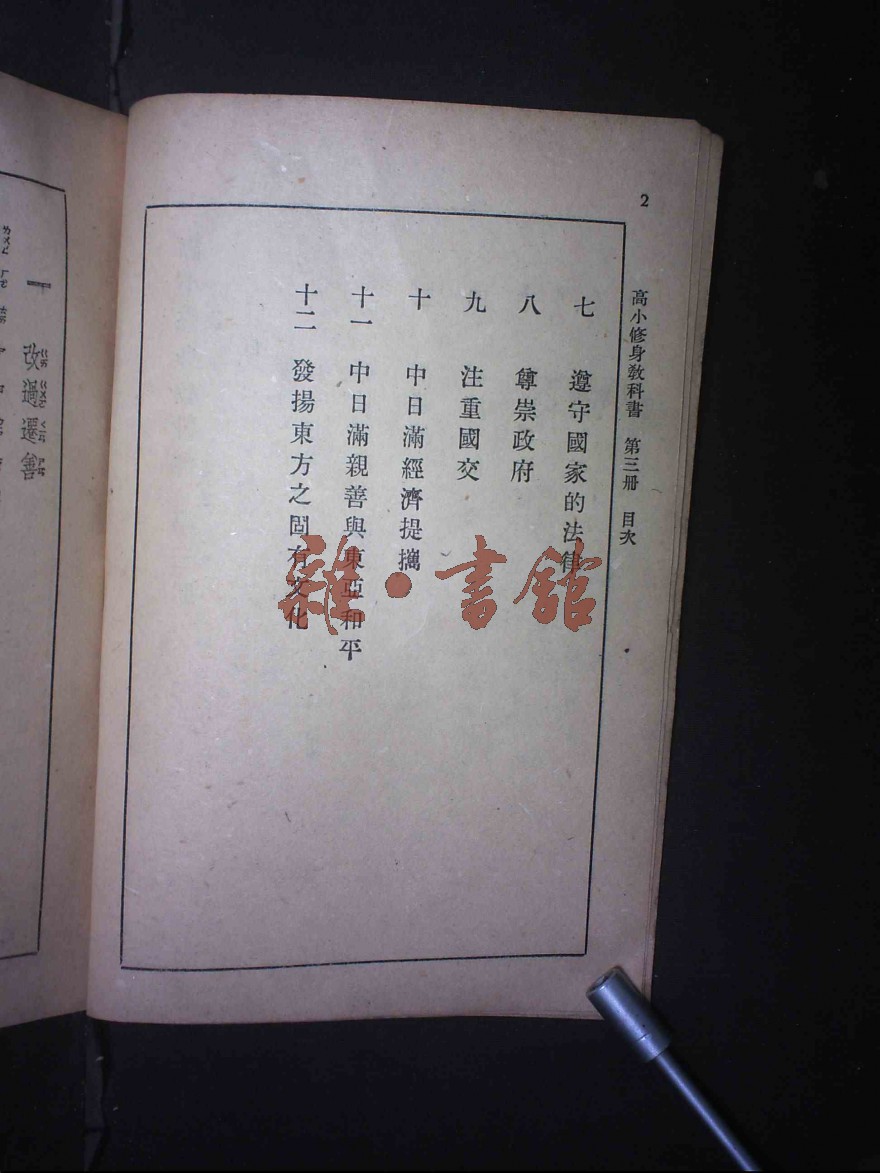 2
高小修身教科書 第三册 目次
七 遵守國家的法律
八 尊崇政府
九 注重國交
十 中日滿經濟提攜
十一 中日滿親善與東亞和平
十二 發揚東方之固有文化
雜·書館
一 改過遷善